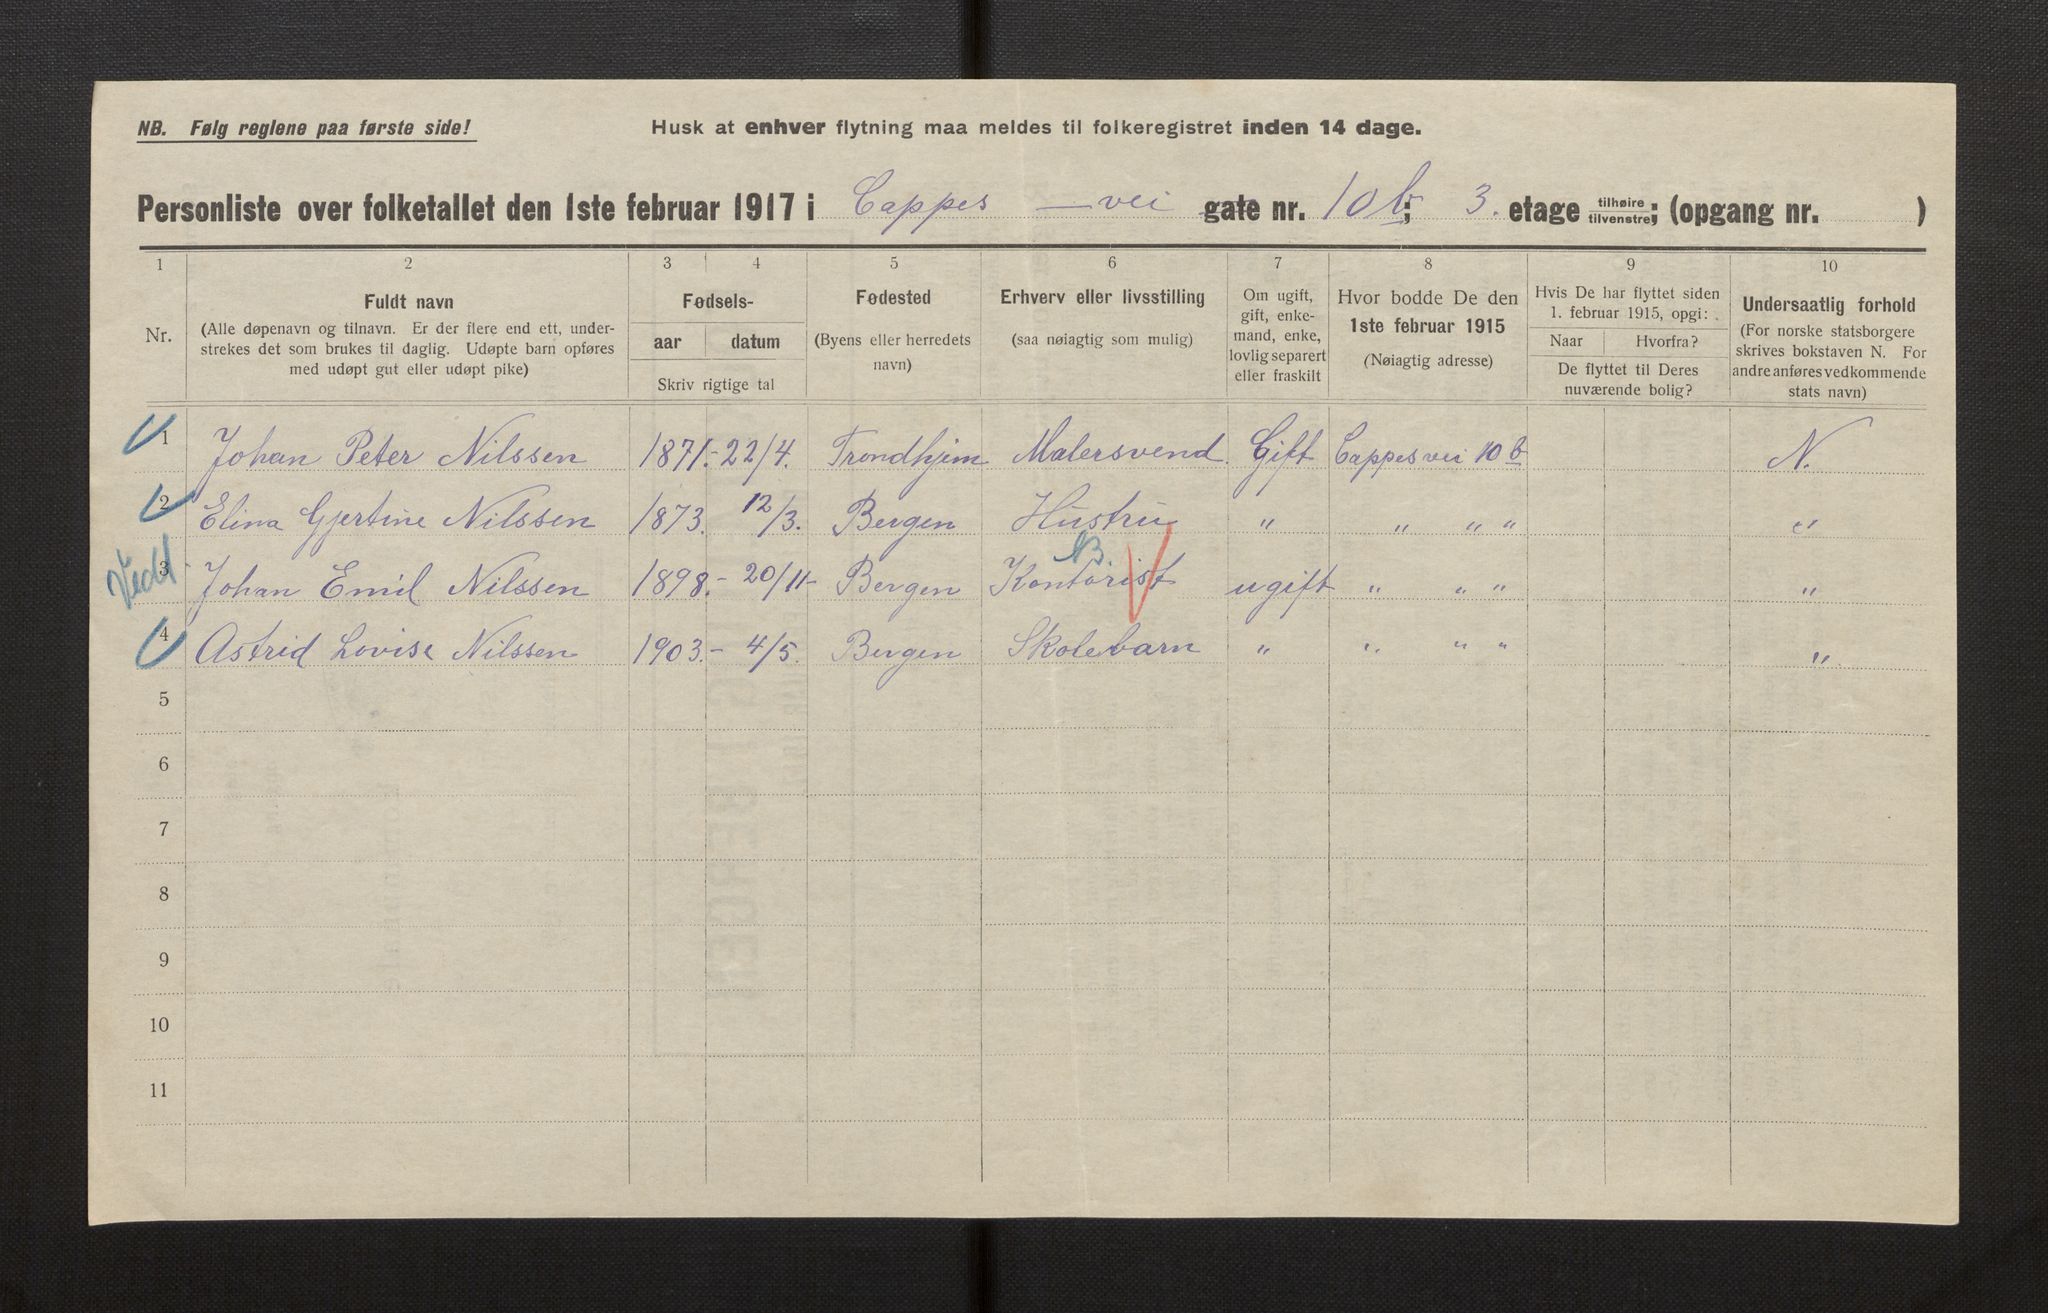 NB. Følg reglene paa første side! Husk at enhver flytning maa meldes til folkeregistret inden 14 dage.
Personliste over folketallet den 1ste februar 1917 i Cappes — vei gate nr. 10 b; 3. etage tilhøire/tilvenstre; (opgang nr. )
1 2 3 4 5 6 7 8 9 10
Nr.
Fuldt navn
(Alle døpenavn og tilnavn. Er der flere end ett, under-
strekes det som brukes til daglig. Udøpte barn opføres
med udøpt gut eller udøpt pike)
Fødsels-
aar datum
Skriv rigtige tal
Fødested
(Byens eller herredets
navn)
Erhverv eller livsstilling
(saa nøiagtig som mulig)
Om ugift,
gift, enke-
mand, enke,
lovlig separert
eller fraskilt
Hvor bodde De den
1ste februar 1915
(Nøiagtig adresse)
Hvis De har flyttet siden
1. februar 1915, opgi:
Naar Hvorfra?
De flyttet til Deres
nuværende bolig?
Undersaatlig forhold
(For norske statsborgere
skrives bokstaven N. For
andre anføres vedkommende
stats navn)
1 Johan Peter Nilssen 1871.- 22/4. Trondhjem Malersvend Gift Cappesvei 10 b N.
2 Elina Gjertine Nilssen 1873. 12/3. Bergen Hustru " " " " "
NB.
Vedl. 3 Johan Emil Nilssen 1898.- 20/11- Bergen Kontorist ugift " " " "
4 Astrid Lovise Nilssen 1903.- 4/5. Bergen Skolebarn " " " " "
5
6
7
8
9
10
11